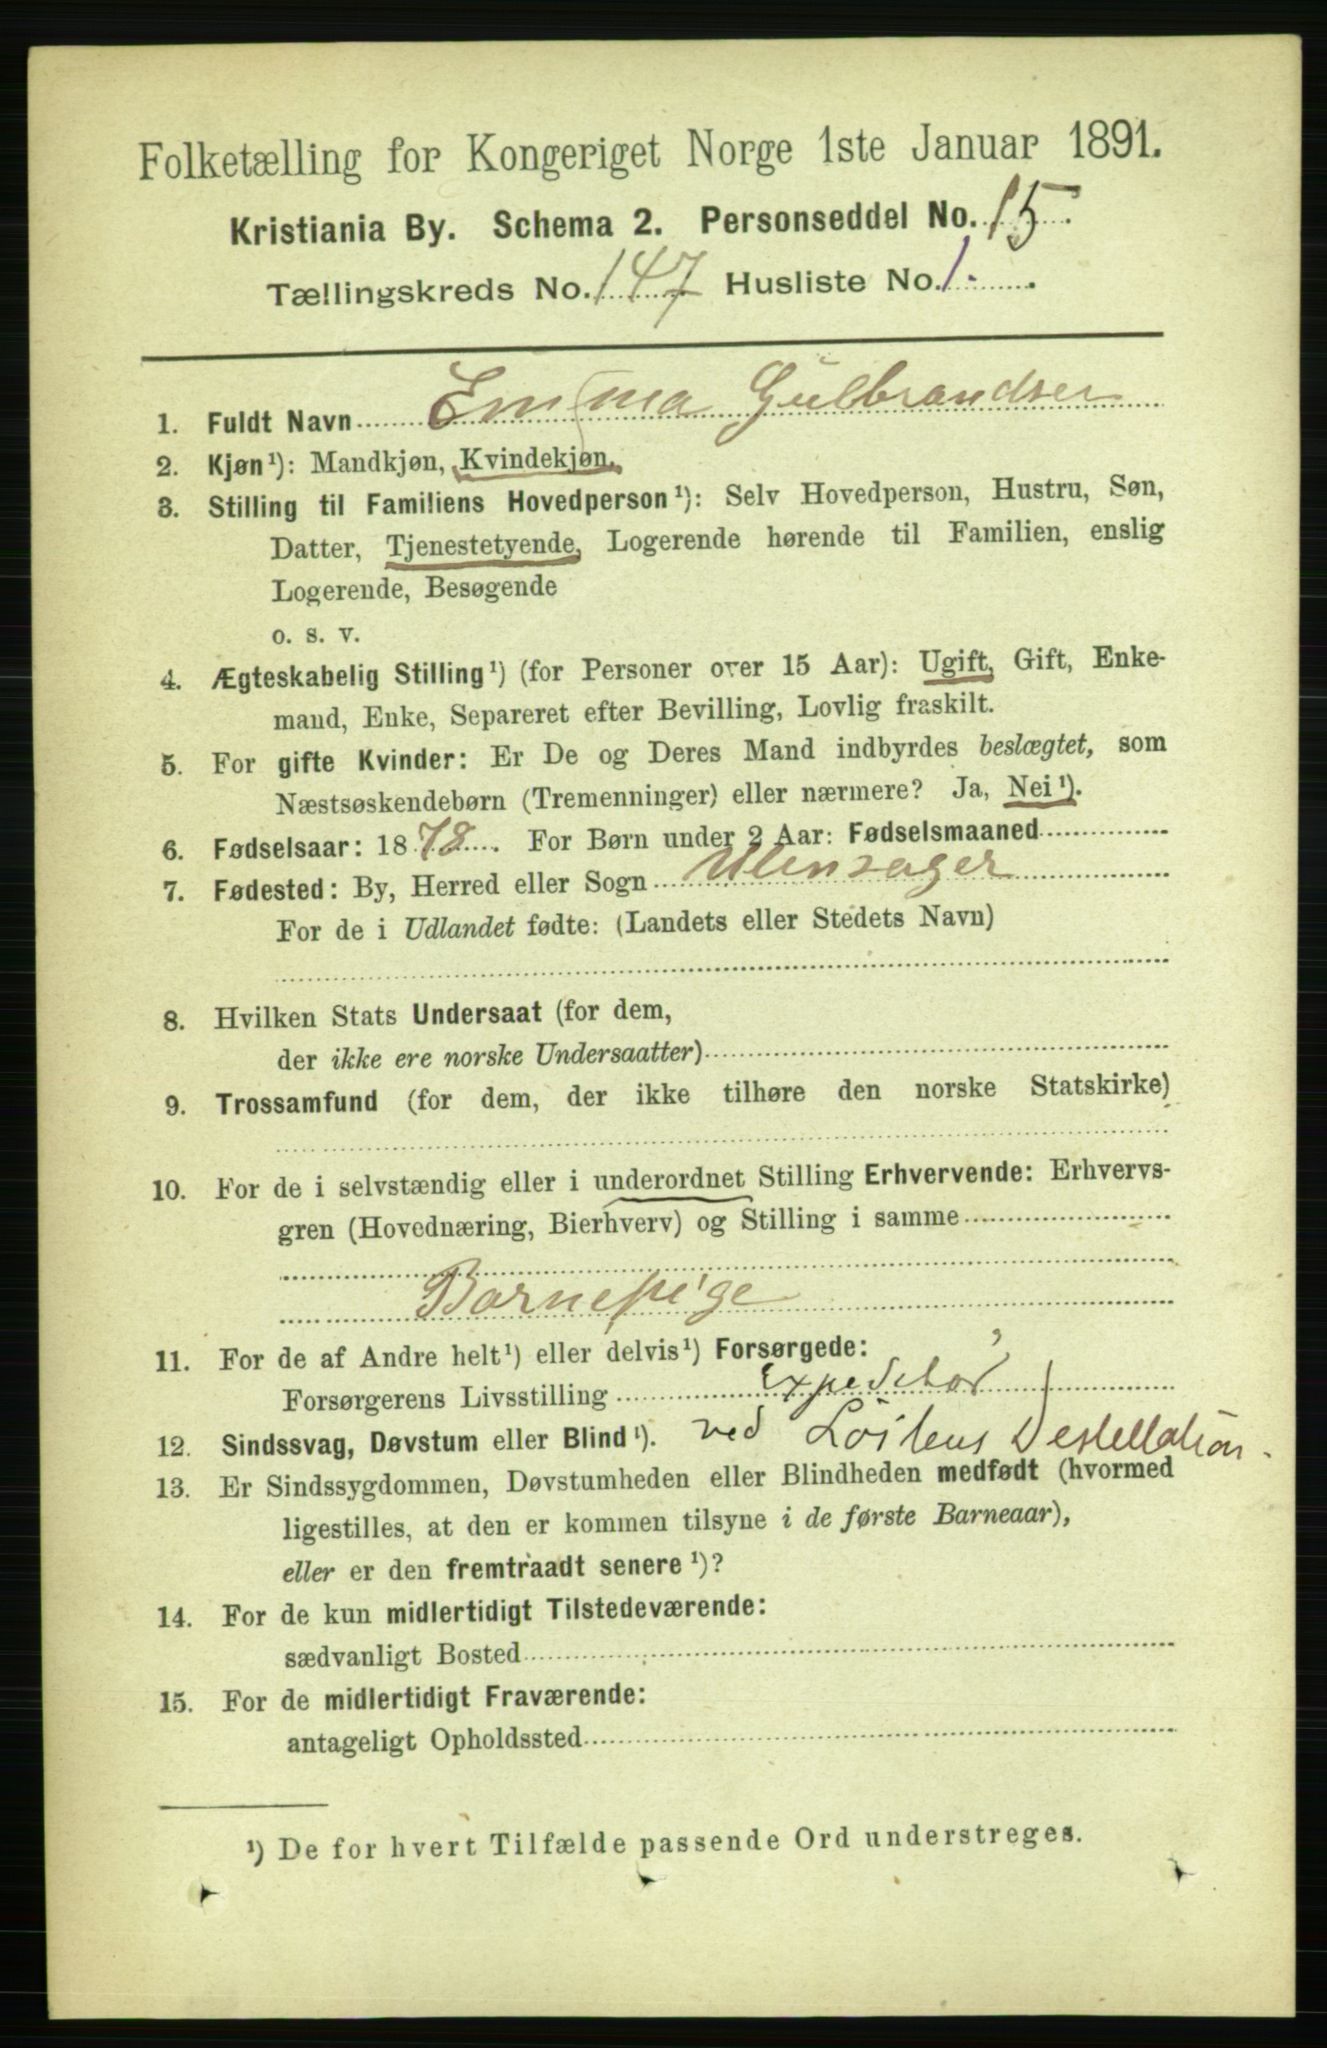 Folketælling for Kongeriget Norge 1ste Januar 1891.
Kristiania By. Schema 2. Personseddel No. 15.
Tællingskreds No. 147 Husliste No. 1.
1. Fuldt Navn Emma Gulbrandsen
2. Kjøn¹): Mandkjøn, Kvindekjøn.
3. Stilling til Familiens Hovedperson¹): Selv Hovedperson, Hustru, Søn,
Datter, Tjenestetyende, Logerende hørende til Familien, enslig
Logerende, Besøgende
o. s. v.
4. Ægteskabelig Stilling¹) (for Personer over 15 Aar): Ugift, Gift, Enke-
mand, Enke, Separeret efter Bevilling, Lovlig fraskilt.
5. For gifte Kvinder: Er De og Deres Mand indbyrdes beslægtet, som
Næstsøskendebørn (Tremenninger) eller nærmere? Ja, Nei¹).
6. Fødselsaar: 1878. For Børn under 2 Aar: Fødselsmaaned
7. Fødested: By, Herred eller Sogn Ulensager
For de i Udlandet fødte: (Landets eller Stedets Navn)
8. Hvilken Stats Undersaat (for dem,
der ikke ere norske Undersaatter)
9. Trossamfund (for dem, der ikke tilhøre den norske Statskirke)
10. For de i selvstændig eller i underordnet Stilling Erhvervende: Erhvervs-
gren (Hovednæring, Bierhverv) og Stilling i samme
Barnepige
11. For de af Andre helt¹) eller delvis¹) Forsørgede:
Forsørgerens Livsstilling Expeditør
12. Sindssvag, Døvstum eller Blind¹). ved Löitens Destellation.
13. Er Sindssygdommen, Døvstumheden eller Blindheden medfødt (hvormed
ligestilles, at den er kommen tilsyne i de første Barneaar),
eller er den fremtraadt senere¹)?
14. For de kun midlertidigt Tilstedeværende:
sædvanligt Bosted
15. For de midlertidigt Fraværende:
antageligt Opholdssted
¹) De for hvert Tilfælde passende Ord understreges.